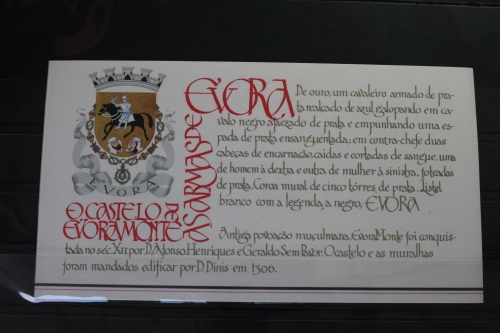 EVORA
De ouro, um cavaleiro armado de pra-
ta realçado de azul, galopando em ca-
valo negro ajaezado de prata e empunhando uma es-
pada de prata ensanguentada; em contra-chefe duas
cabeças de encarnação, caidas e cortadas de sangue, uma
de homem à dextra e outra de mulher à sinistra, toucadas
de prata. Coroa mural de cinco tôrres de prata. Listel
branco com a legenda, a negro, EVORA
AS ARMAS DE
EVORA
O CASTELO DE
EVORAMONTE
Antiga povoação muçulmana, EvoraMonte foi conquis-
tada no séc. XII por D. Afonso Henriques e Geraldo Sem Pavor. O castelo e as muralhas
foram mandados edificar por D. Dinis em 1306.